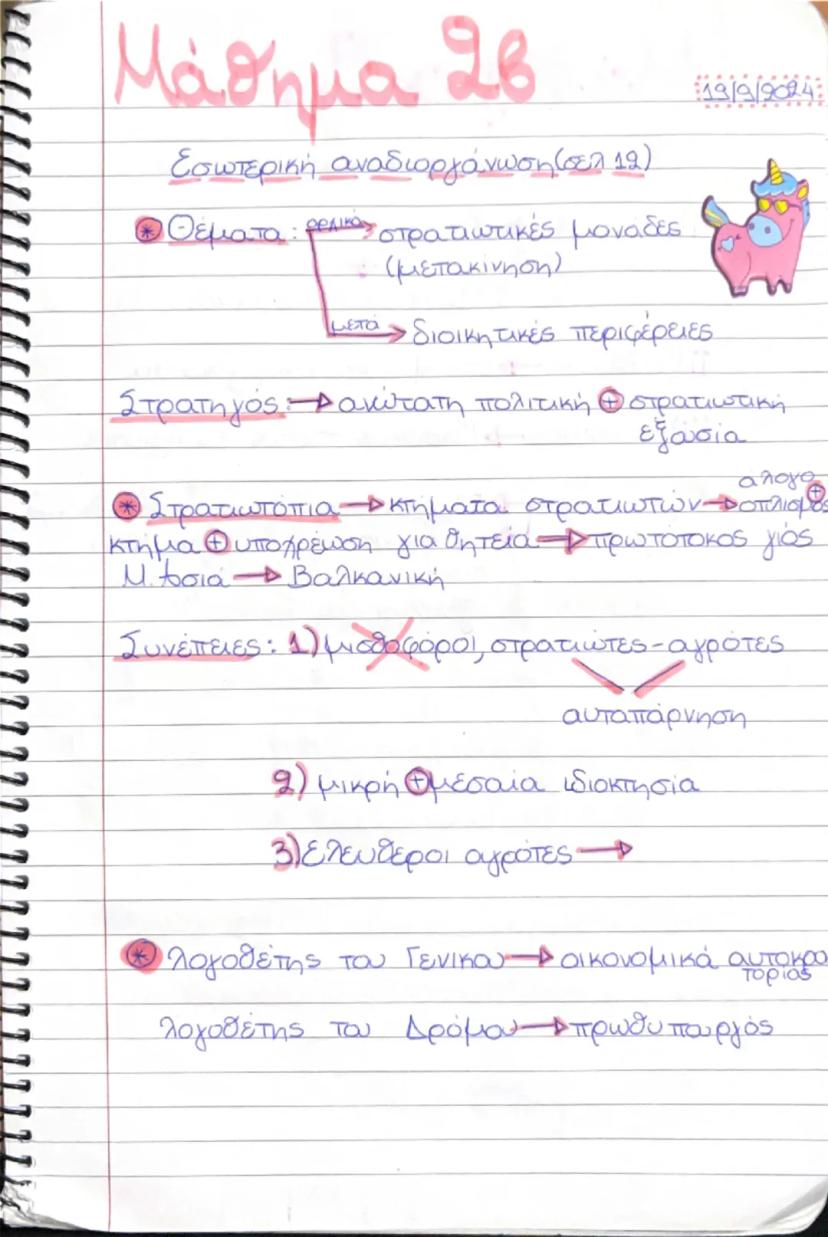 Μάθημα 2β
19/9/2024
Εσωτερική αναδιοργάνωση (σελ 12)
* Θέματα: αρχικά → στρατιωτικές μονάδες
(μετακίνηση)
μετά → διοικητικές περιφέρειες
Στρατηγός: → ανώτατη πολιτική + στρατιωτική
εξουσία
άλογο +
* Στρατιωτόπια → κτήματα στρατιωτών → οπλισμός
κτήμα + υποχρέωση για θητεία → πρωτότοκος γιός
Μ. Ασιά → Βαλκανική
Συνέπειες: 1) μισθοφόροι, στρατιώτες - αγρότες
αυταπάρνηση
2) μικρή + μεσαία ιδιοκτησία
3) Ελεύθεροι αγρότες →
* Λογοθέτης του Γενικου → οικονομικά αυτοκρα
τορίας
Λογοθέτης του Δρόμου → πρωθυπουργός